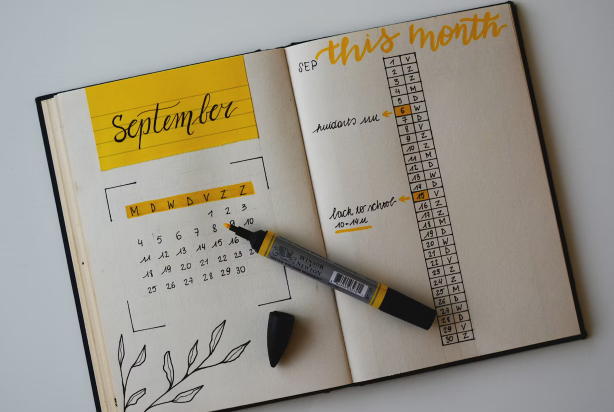 September
M D W D V Z Z
1 2 3
4 5 6 7 8 9 10
11 12 13 14 15 16
18 19 20 21 22 23
25 26 27 28 29 30
WINSOR
& NEWTON
SEP this month
1 V
2 Z
3 Z
4 M
5 D
6 W
huidarts
7 D
8 V
9 Z
10 Z
11 M
12 D
13 W
14 D
15 V
back to school
10-14u
16 Z
17 Z
18 M
19 D
20 W
21 D
22 V
23 Z
24 Z
25 M
26 D
27 W
28 D
29 V
30 Z